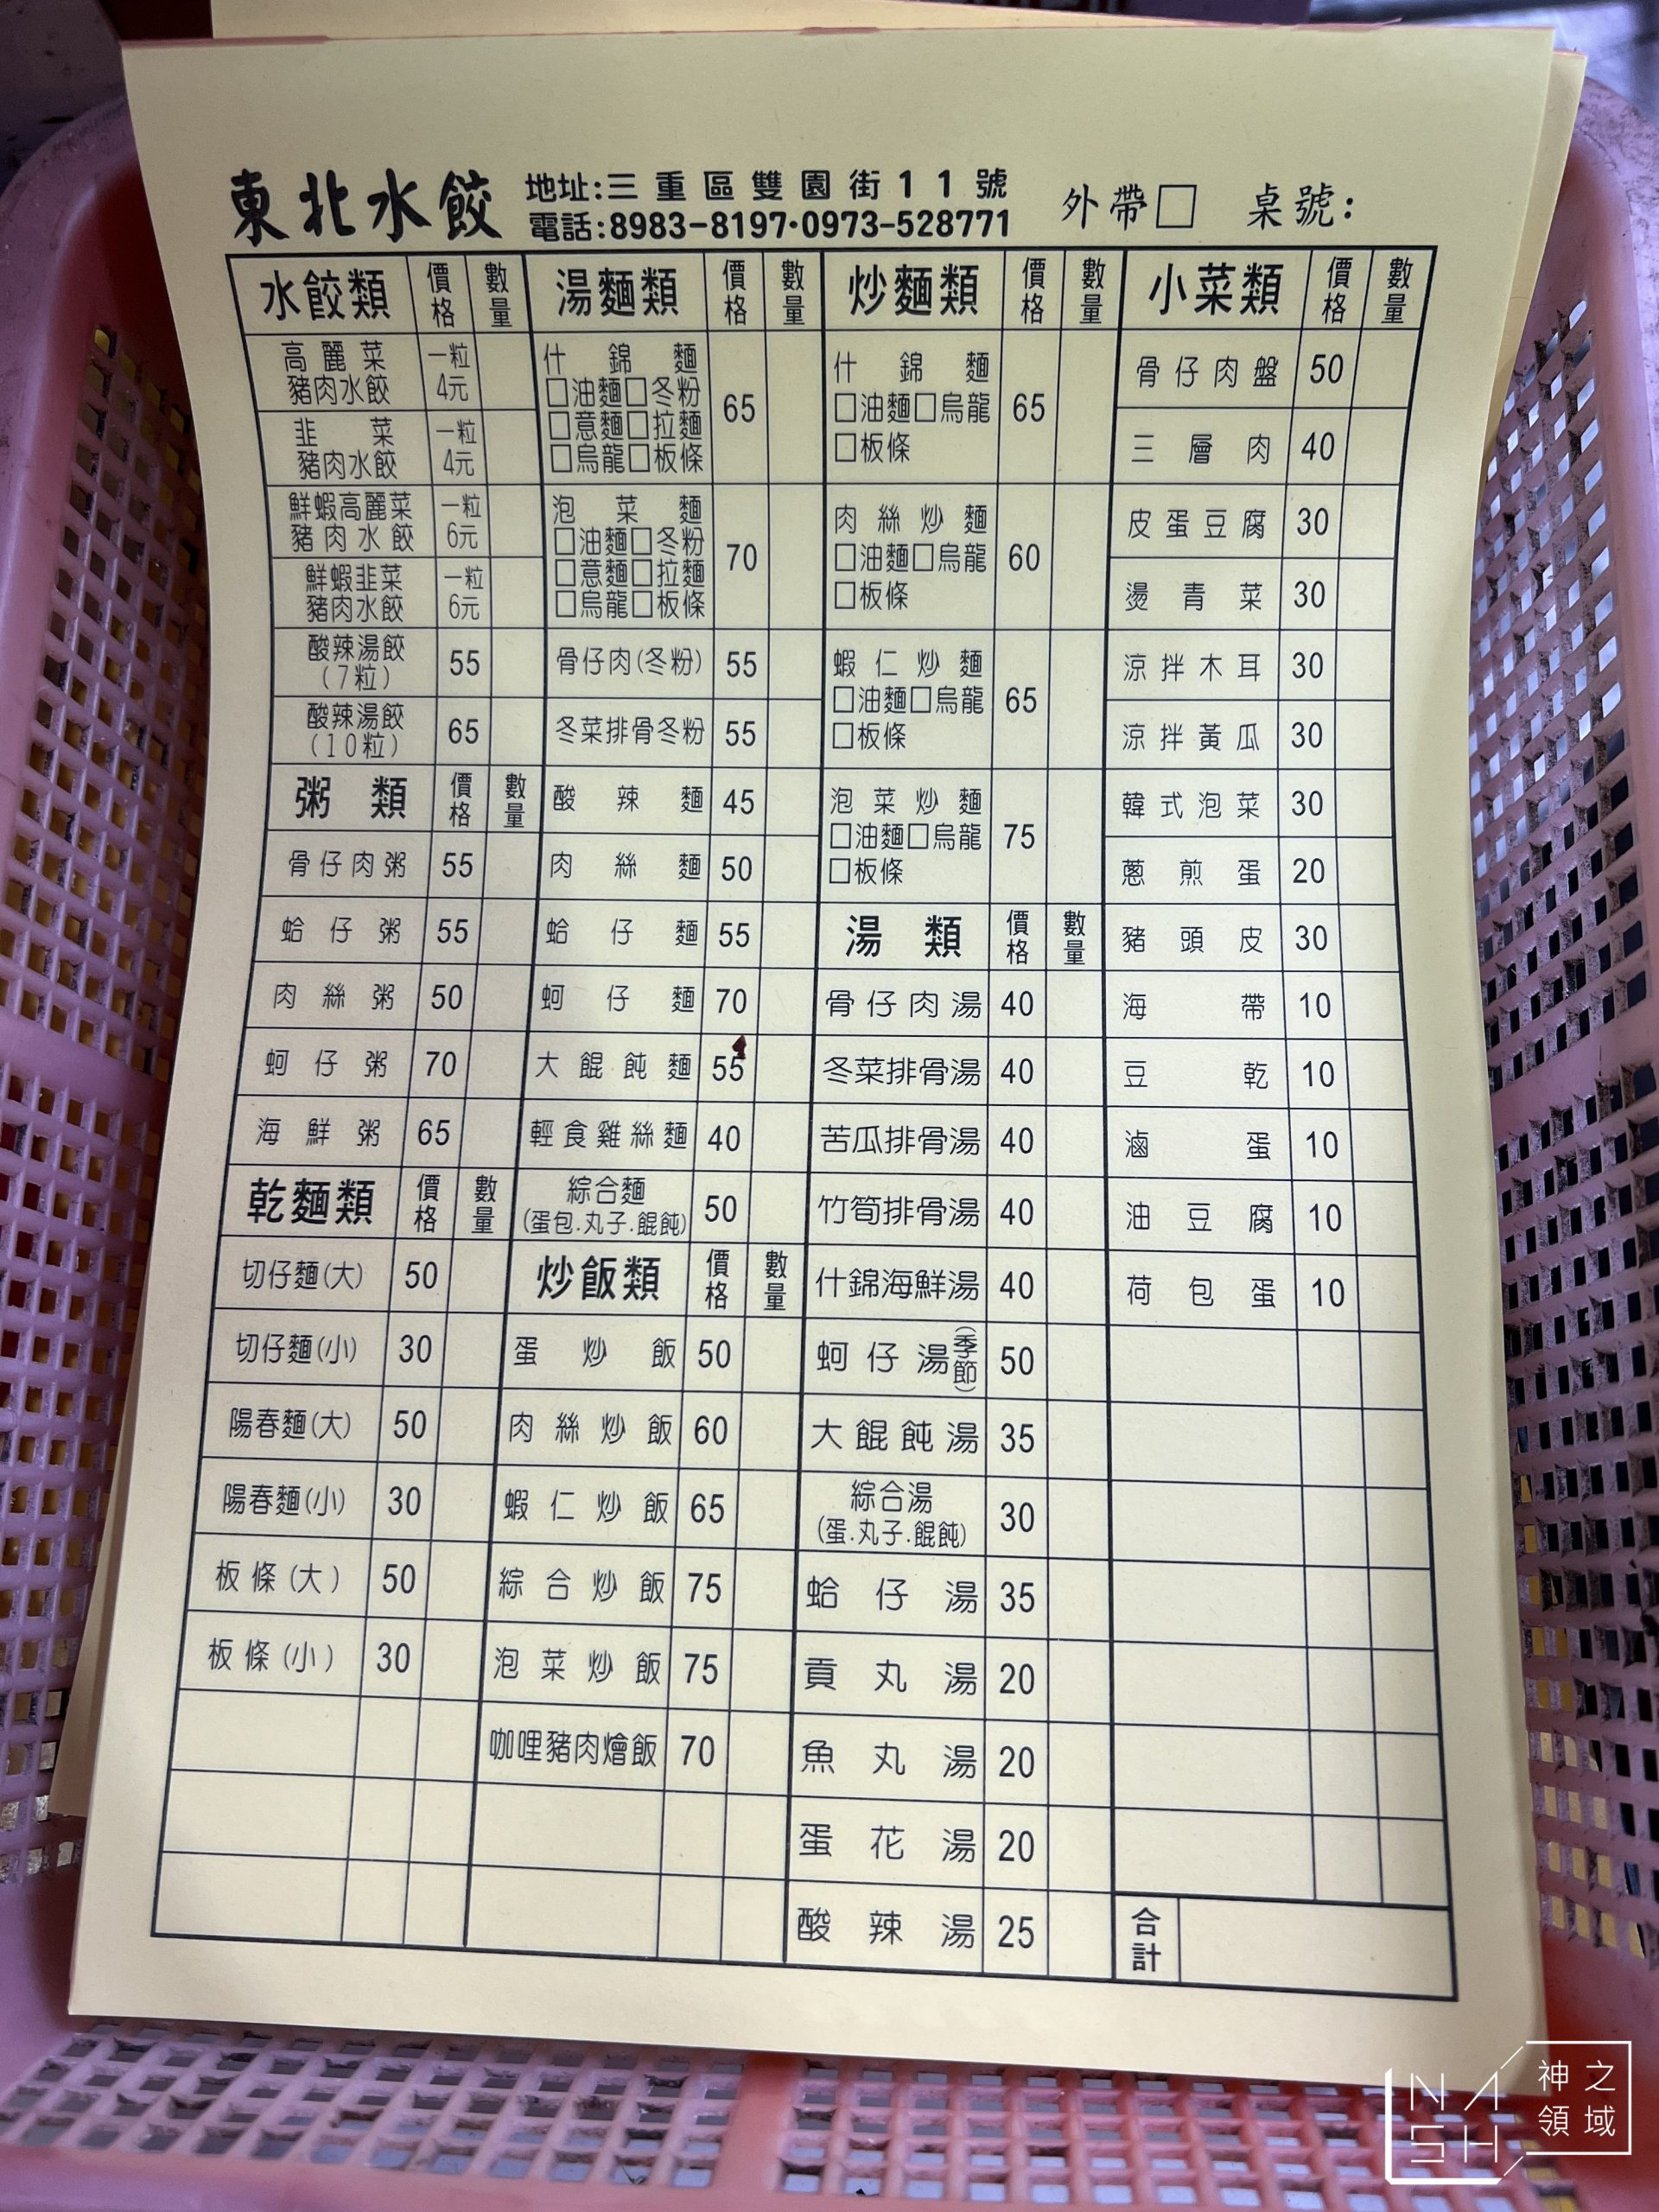 東北水餃
地址:三重區雙園街11號
電話:8983-8197·0973-528771
外帶□ 桌號:
水餃類 價格 數量
高麗菜
豬肉水餃
一粒
4元
韭菜
豬肉水餃
一粒
4元
鮮蝦高麗菜
豬肉水餃
一粒
6元
鮮蝦韭菜
豬肉水餃
一粒
6元
酸辣湯餃
(7粒)
55
酸辣湯餃
(10粒)
65
粥類 價格 數量
骨仔肉粥 55
蛤仔粥 55
肉絲粥 50
蚵仔粥 70
海鮮粥 65
乾麵類 價格 數量
切仔麵(大) 50
切仔麵(小) 30
陽春麵(大) 50
陽春麵(小) 30
板條(大) 50
板條(小) 30
湯麵類 價格 數量
什錦麵
□油麵□冬粉
□意麵□拉麵
□烏龍□板條
65
泡菜麵
□油麵□冬粉
□意麵□拉麵
□烏龍□板條
70
骨仔肉(冬粉) 55
冬菜排骨冬粉 55
酸辣麵 45
肉絲麵 50
蛤仔麵 55
蚵仔麵 70
大餛飩麵 55
輕食雞絲麵 40
綜合麵
(蛋包.丸子.餛飩)
50
炒飯類 價格 數量
蛋炒飯 50
肉絲炒飯 60
蝦仁炒飯 65
綜合炒飯 75
泡菜炒飯 75
咖哩豬肉燴飯 70
炒麵類 價格 數量
什錦麵
□油麵□烏龍
□板條
65
肉絲炒麵
□油麵□烏龍
□板條
60
蝦仁炒麵
□油麵□烏龍
□板條
65
泡菜炒麵
□油麵□烏龍
□板條
75
湯類 價格 數量
骨仔肉湯 40
冬菜排骨湯 40
苦瓜排骨湯 40
竹筍排骨湯 40
什錦海鮮湯 40
蚵仔湯(季節) 50
大餛飩湯 35
綜合湯
(蛋.丸子.餛飩)
30
蛤仔湯 35
貢丸湯 20
魚丸湯 20
蛋花湯 20
酸辣湯 25
小菜類 價格 數量
骨仔肉盤 50
三層肉 40
皮蛋豆腐 30
燙青菜 30
涼拌木耳 30
涼拌黃瓜 30
韓式泡菜 30
蔥煎蛋 20
豬頭皮 30
海帶 10
豆乾 10
滷蛋 10
油豆腐 10
荷包蛋 10
合計
NASH
神之
領域